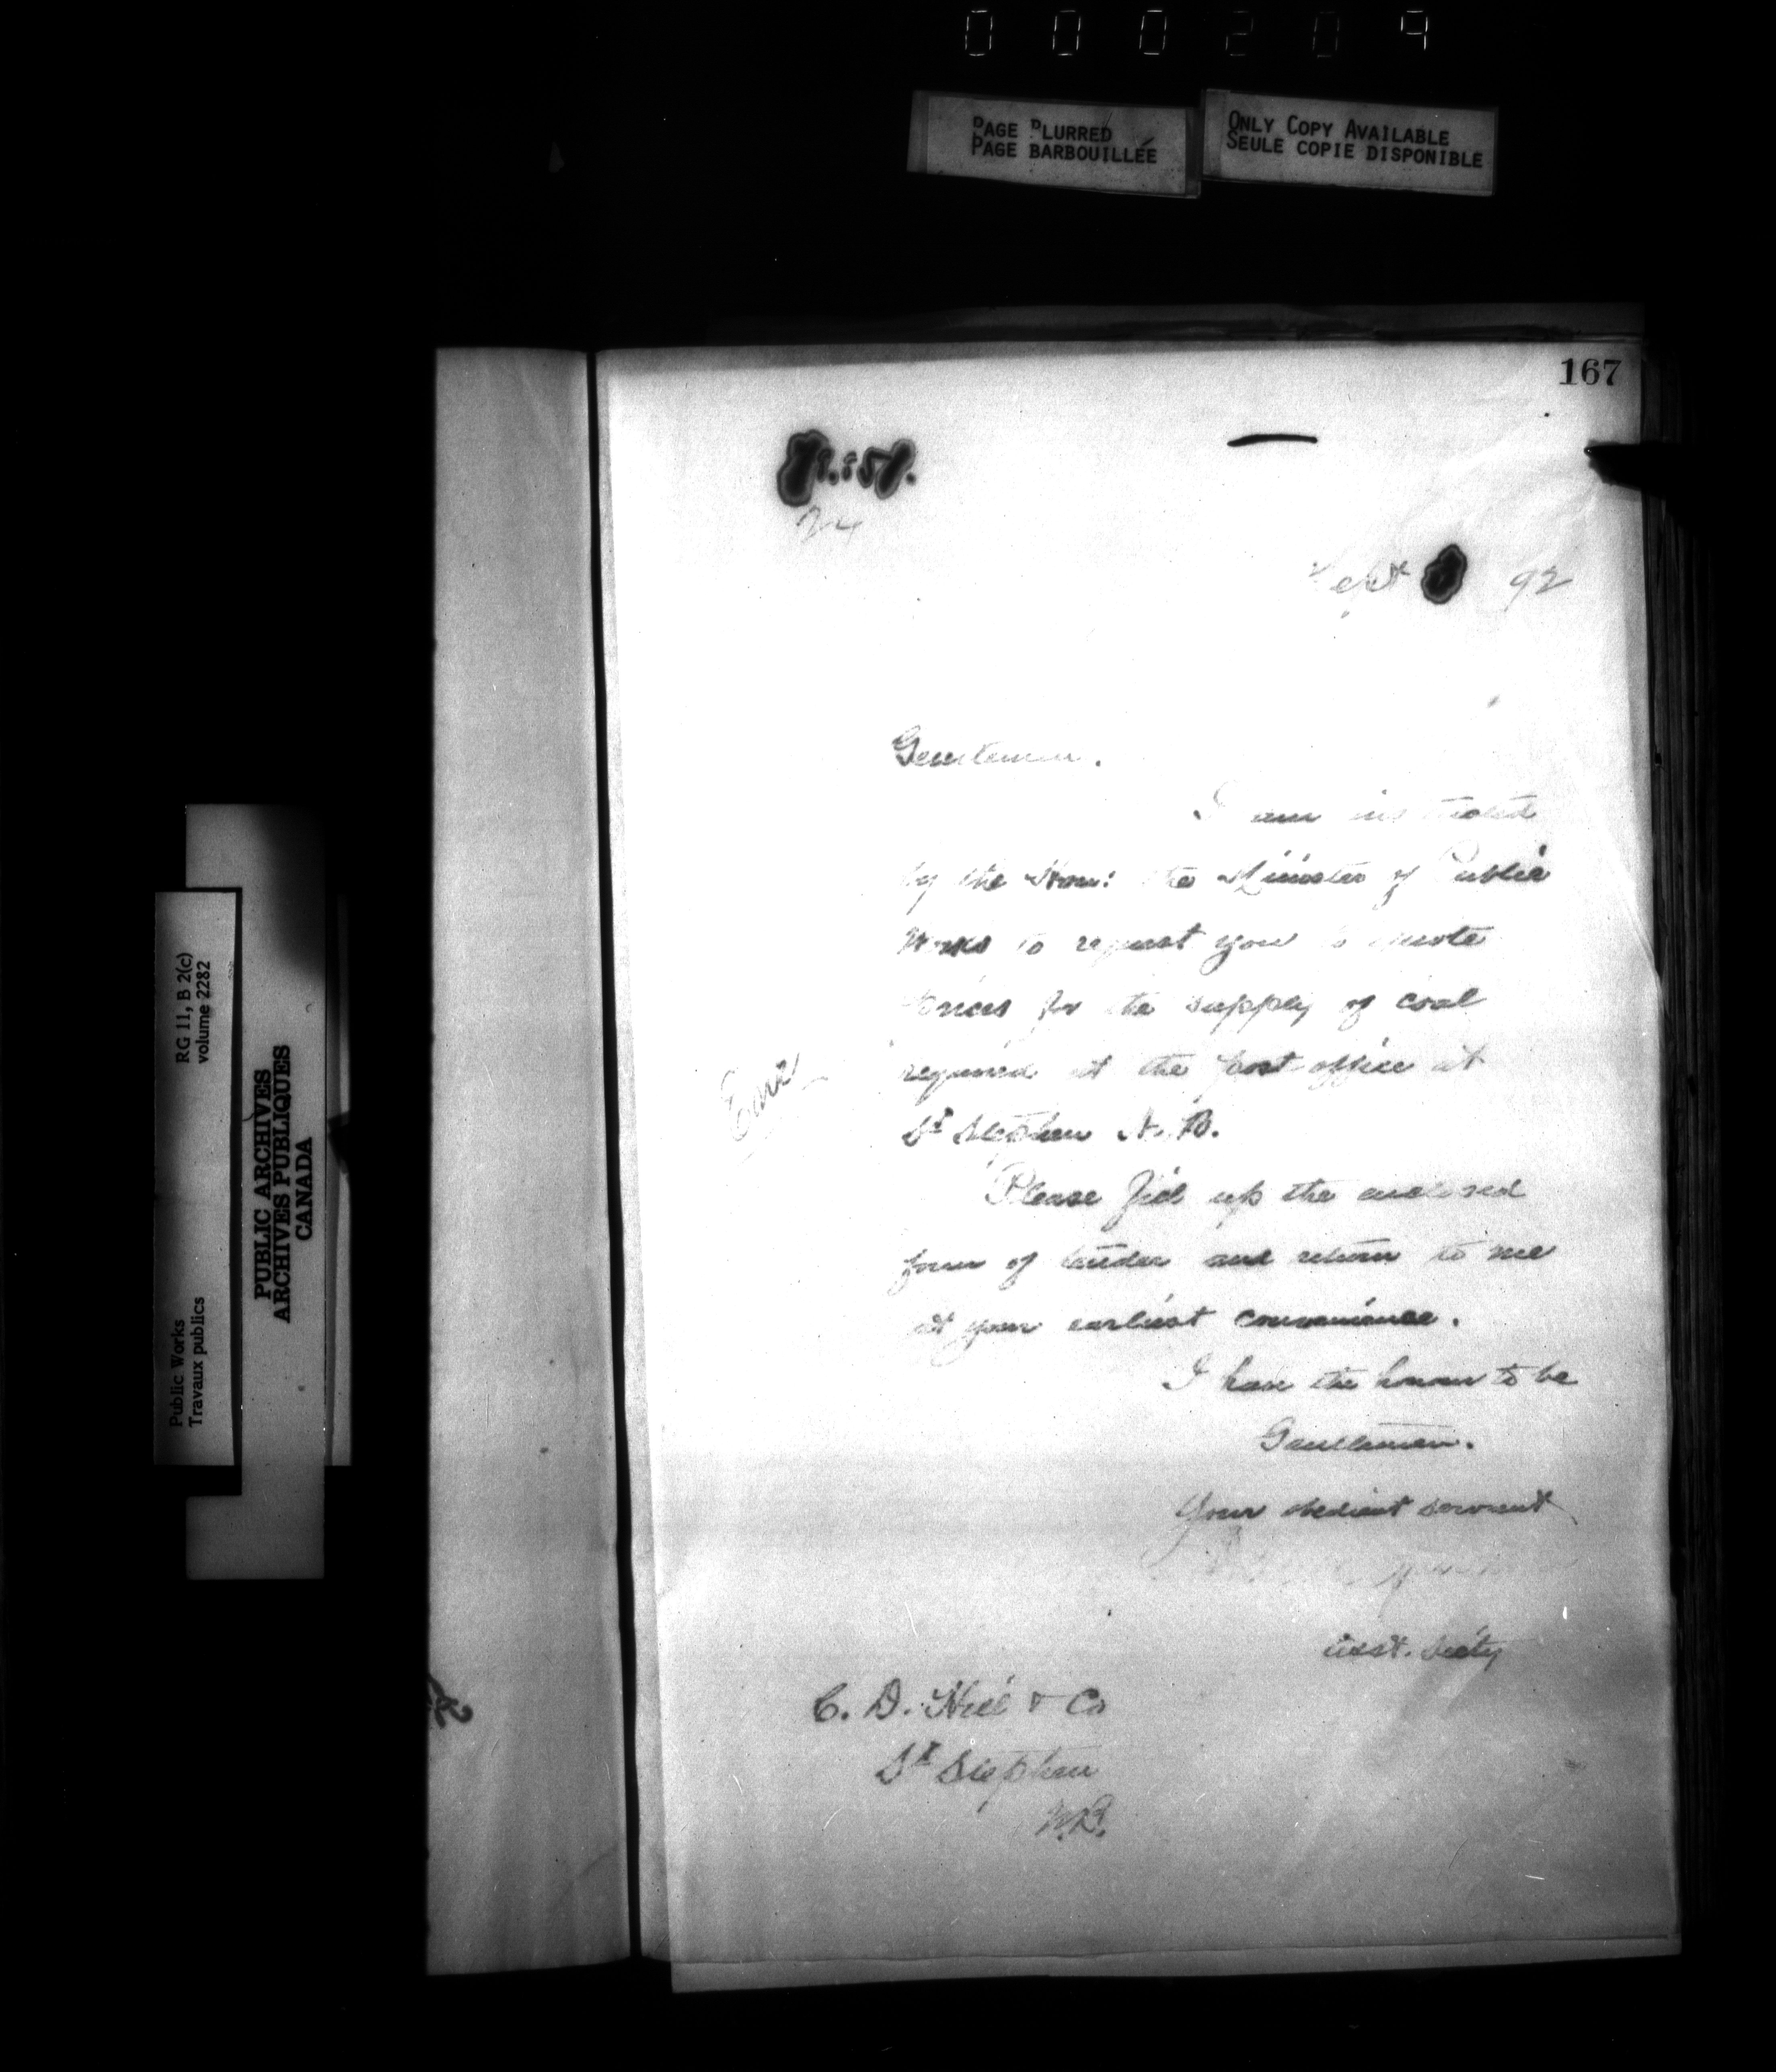 000209
PAGE BLURRED
PAGE BARBOUILLÉE
ONLY COPY AVAILABLE
SEULE COPIE DISPONIBLE
167
24
Sept 92
Gentlemen.
I am instructed
by the Hon: the Minister of Public
Works to request you to quote
prices for the supply of coal
required at the post office at
St Stephen N.B.
Please fill up the enclosed
form of tender and return to me
at your earliest convenience.
I have the honour to be
Gentlemen.
Your obedient servant
Asst. Secty
C. D. Hill & Co
St Stephen
N.B.
RG 11, B 2(c)
volume 2282
Public Works
Travaux publics
PUBLIC ARCHIVES
ARCHIVES PUBLIQUES
CANADA